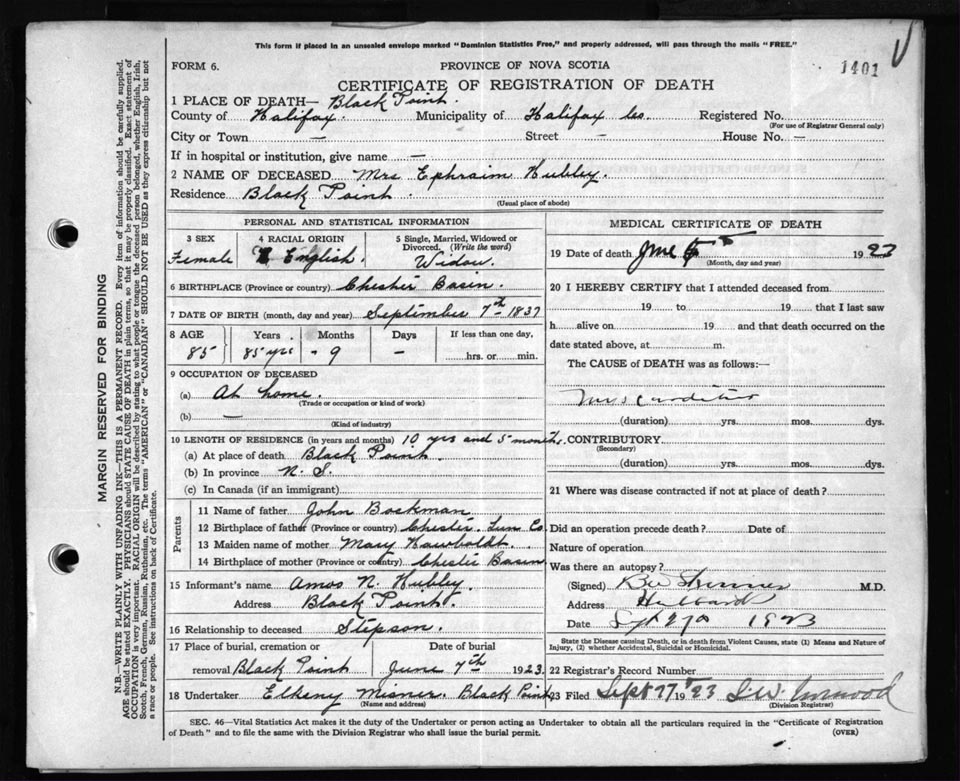 This form if placed in an unsealed envelope marked "Dominion Statistics Free," and properly addressed, will pass through the mails "FREE."
FORM 6.
PROVINCE OF NOVA SCOTIA
1401
CERTIFICATE OF REGISTRATION OF DEATH
1 PLACE OF DEATH— Black Point.
County of Halifax. Municipality of Halifax Co. Registered No.
(For use of Registrar General only)
City or Town — Street — House No. —
If in hospital or institution, give name —
2 NAME OF DECEASED Mrs Ephraim Hubley.
Residence Black Point
(Usual place of abode)
PERSONAL AND STATISTICAL INFORMATION
3 SEX 4 RACIAL ORIGIN 5 Single, Married, Widowed or
Divorced. (Write the word)
Female English. Widow.
6 BIRTHPLACE (Province or country) Chester Basin.
7 DATE OF BIRTH (month, day and year) September 7th 1837
8 AGE Years Months Days If less than one day,
85 85 yrs - 9 — hrs. or min.
9 OCCUPATION OF DECEASED
(a) At home.
(Trade or occupation or kind of work)
(b) —
(Kind of industry)
10 LENGTH OF RESIDENCE (in years and months) 10 yrs and 5 months.
(a) At place of death Black Point.
(b) In province N. S.
(c) In Canada (if an immigrant)
Parents
11 Name of father John Bockman
12 Birthplace of father (Province or country) Chester. Lun Co.
13 Maiden name of mother Mary Hawboldt.
14 Birthplace of mother (Province or country) Chester Basin
15 Informant's name Amos N. Hubley.
Address Black Point.
16 Relationship to deceased Stepson.
17 Place of burial, cremation or Date of burial
removal Black Point June 7th 1923
18 Undertaker Elkeny Misner. Black Point
(Name and address)
MEDICAL CERTIFICATE OF DEATH
19 Date of death June 5th 1923
(Month, day and year)
20 I HEREBY CERTIFY that I attended deceased from
19 to 19 that I last saw
h alive on 19 and that death occurred on the
date stated above, at m.
The CAUSE of DEATH was as follows:—
(duration) yrs. mos. dys.
CONTRIBUTORY
(Secondary)
(duration) yrs. mos. dys.
21 Where was disease contracted if not at place of death?
Did an operation precede death? Date of
Nature of operation
Was there an autopsy?
(Signed) M.D.
Address
Date Sept 27th 1923
State the Disease causing Death, or in death from Violent Causes, state (1) Means and Nature of
Injury, (2) whether Accidental, Suicidal or Homicidal.
22 Registrar's Record Number
23 Filed Sept 27th 1923
(Division Registrar)
SEC. 46—Vital Statistics Act makes it the duty of the Undertaker or person acting as Undertaker to obtain all the particulars required in the "Certificate of Registration
of Death" and to file the same with the Division Registrar who shall issue the burial permit. (OVER)
MARGIN RESERVED FOR BINDING
N.B.—WRITE PLAINLY WITH UNFADING INK—THIS IS A PERMANENT RECORD. Every item of information should be carefully supplied.
AGE should be stated EXACTLY. PHYSICIANS should STATE CAUSE OF DEATH in plain terms, so that it may be properly classified. Exact statement of
OCCUPATION is very important. RACIAL ORIGIN will be described by stating to what people or tongue the deceased person belonged, whether English, Irish,
Scotch, French, German, Russian, Ruthenian, etc. The terms "AMERICAN" or "CANADIAN" SHOULD NOT BE USED as they express citizenship but not
a race or people. See instructions on back of Certificate.